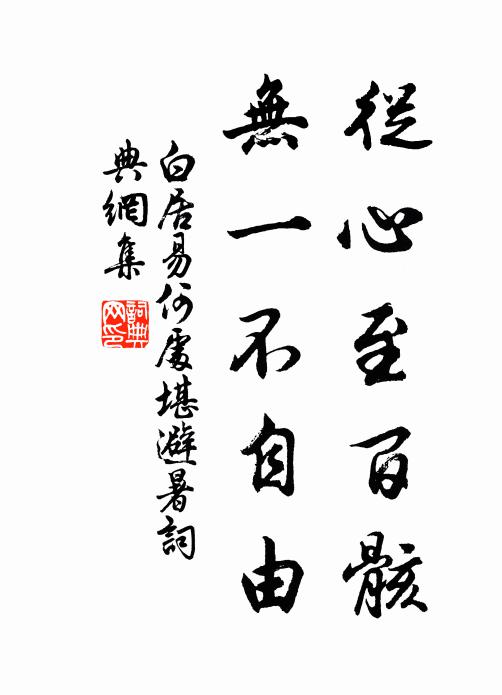 從心至百骸
無一不自由
白居易何處堪避暑詞
典網集
詞典
网印